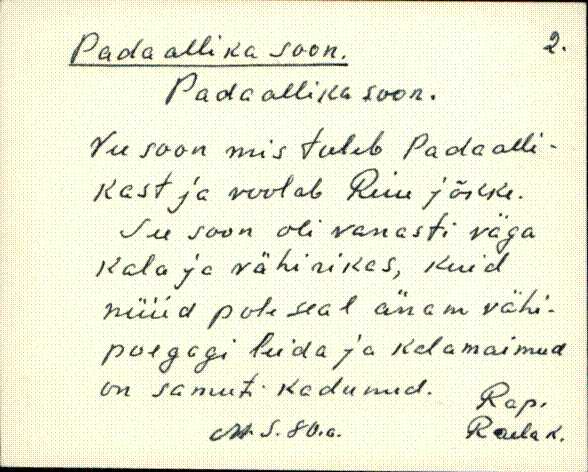 Padaallika soon. 2.
Padaallika soon.
Vee soon mis tuleb Padaalli-
kast ja voolab jõkke.
See soon oli vanasti väga
kala ja vähirikas, kuid
nüüd pole seal änam vähi-
poegagi leida ja kalamaimud
on samuti kadunud.
Rap.
S. 80.a. Raela k.